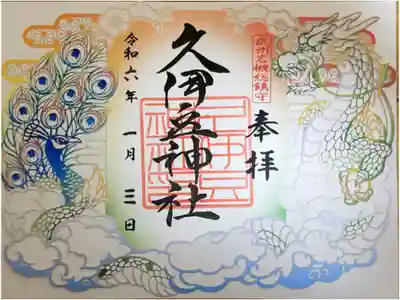 奉拝
久伊豆神社
令和六年 一月 三日